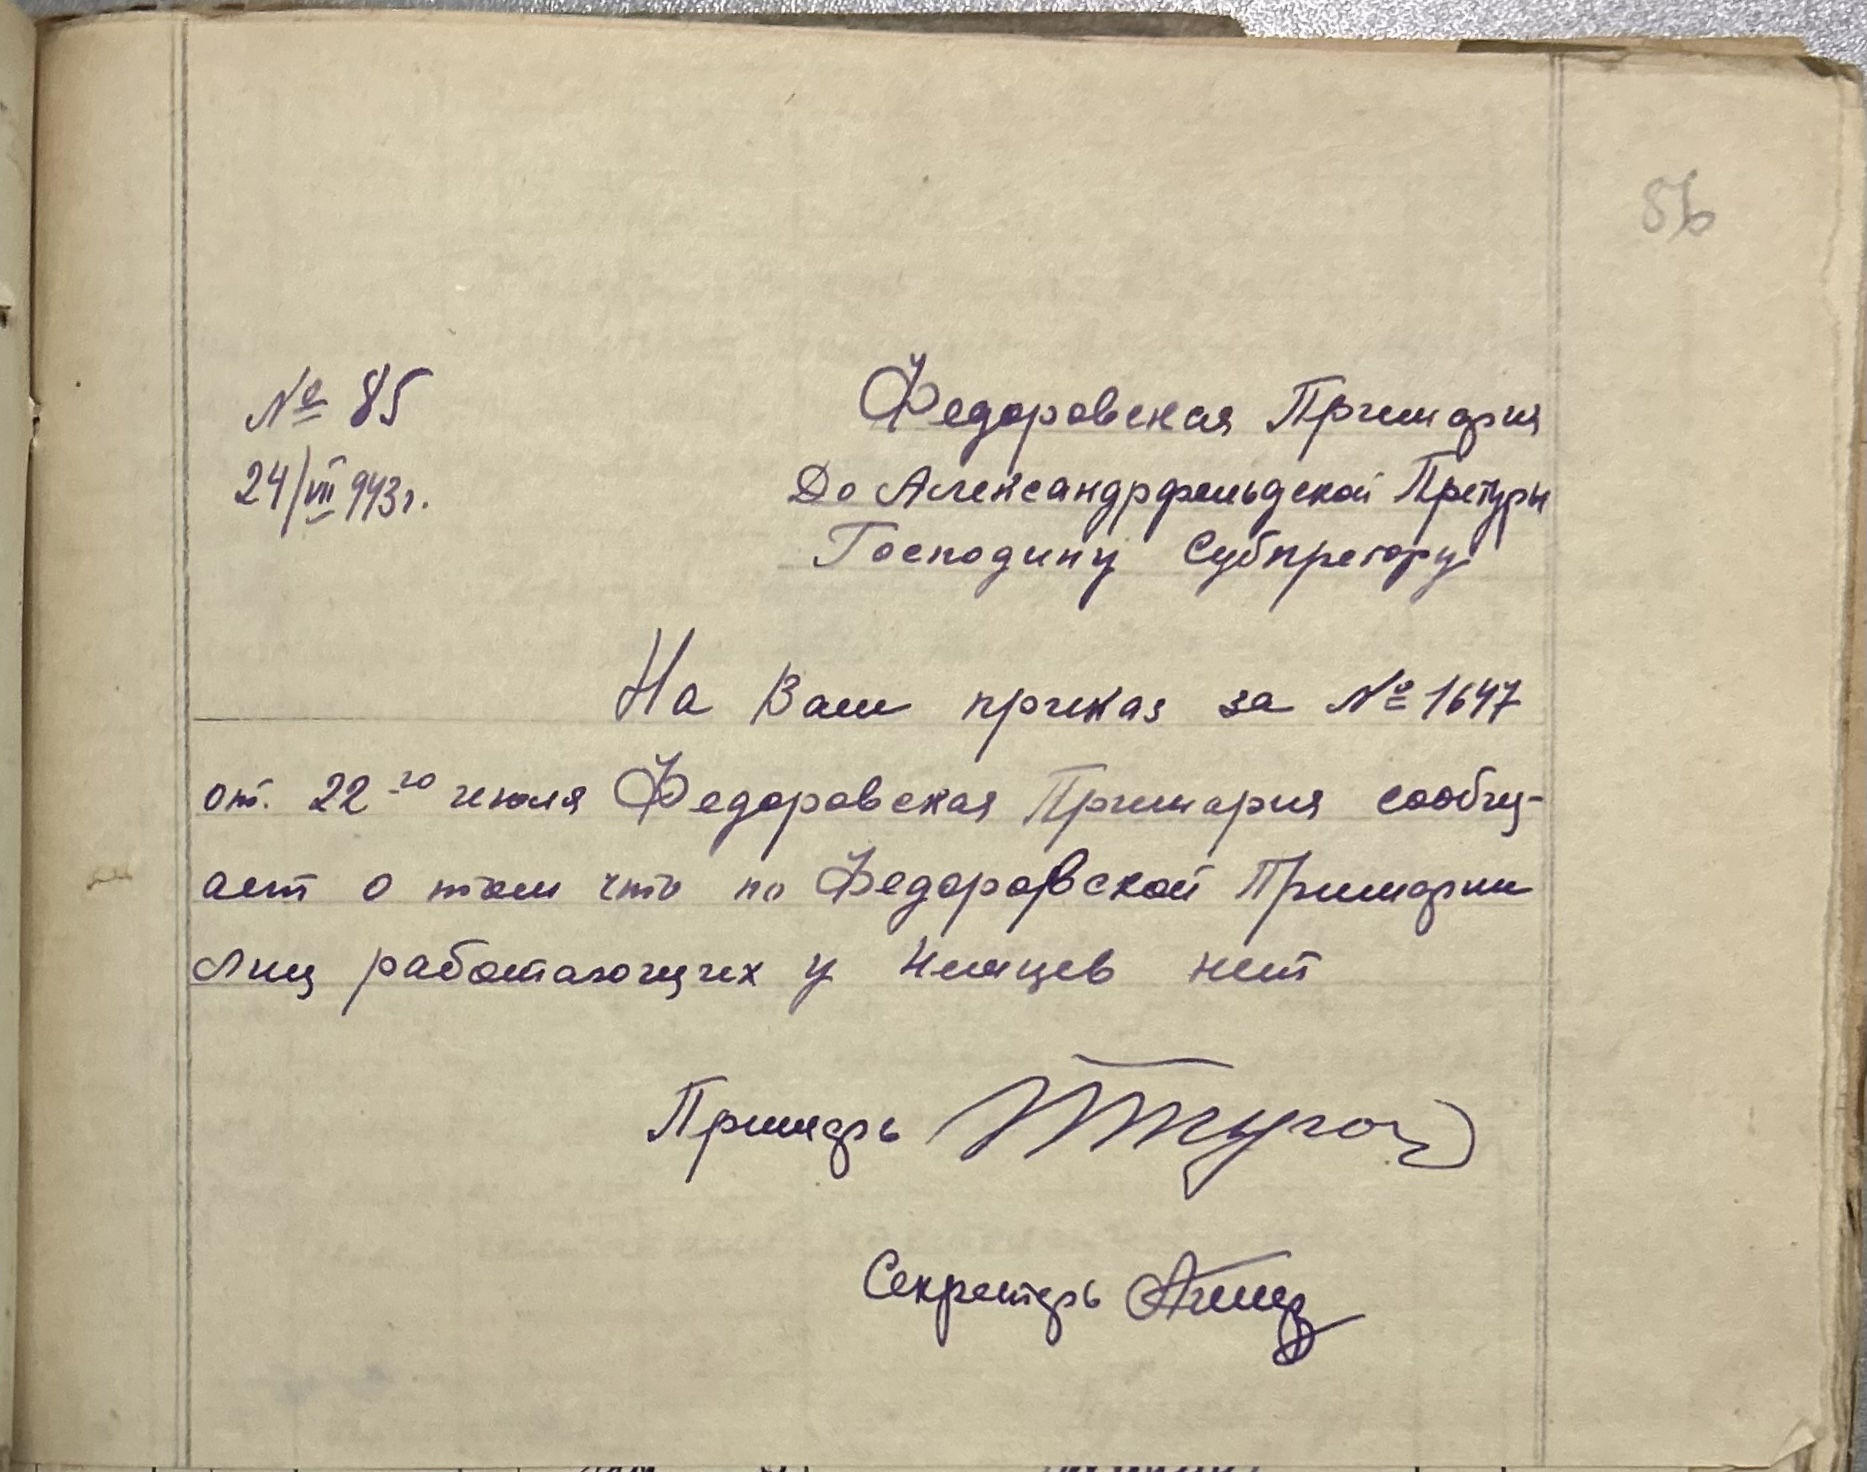 56
№ 85
24/VII 943 г.
Федоровская Примария
До Александрфельдской Претуры
Господину Субпретору
На Ваш приказ за № 1647
от. 22-го июля Федоровская Примария сообщ-
ает о том что по Федоровской Примарии
лиц работающих у немцев нет
Примарь
Секретарь